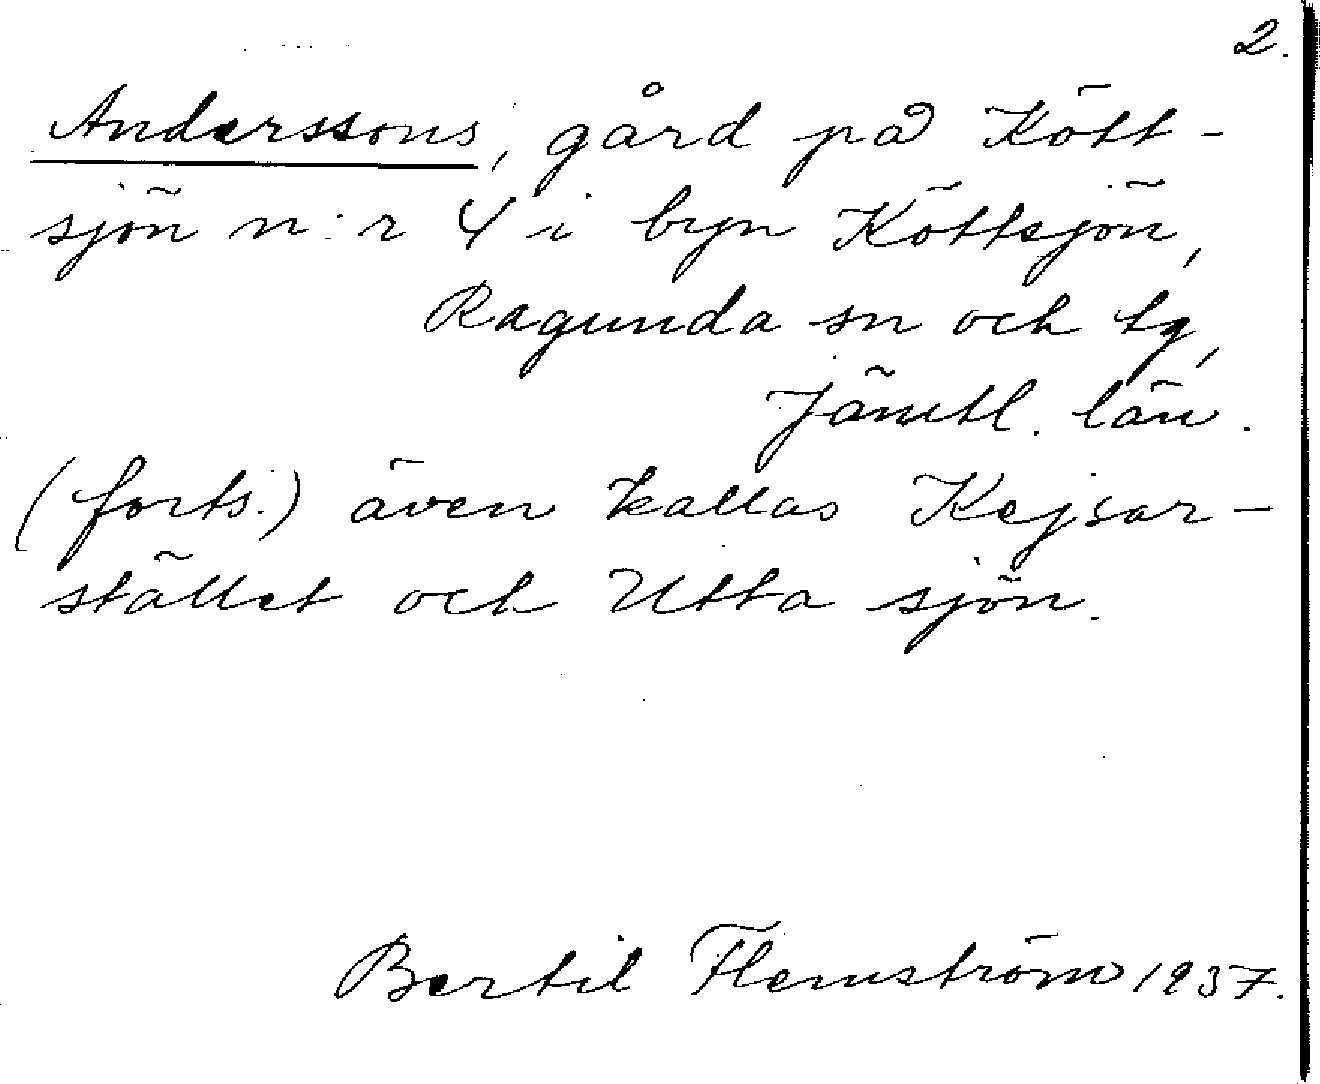 2.
Anderssons, gård på Kött-
sjön n:r 4 i byn Köttsjön,
Ragunda sn och tg,
Jämtl. län.
(forts.) även kallas Kejsar-
stället och Utta sjön.
Bertil Flemström 1937.